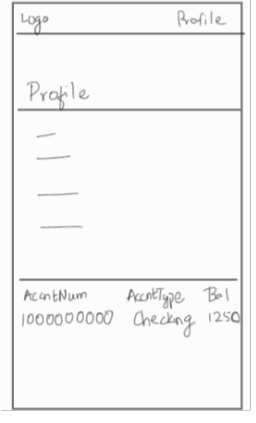 Logo Profile
Profile
AccntNum AccntType Bal
1000000000 Checking 1250